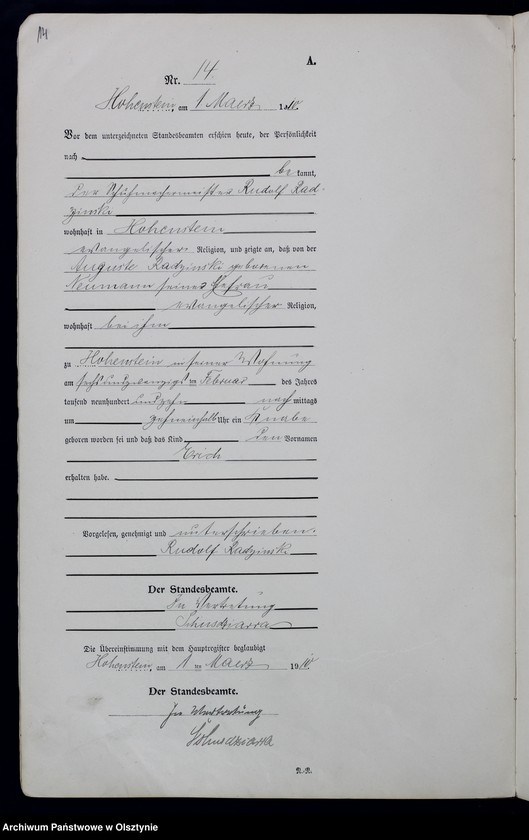 14
A.
Nr. 14.
Hohenstein, am 1 Maerz 1910.
Vor dem unterzeichneten Standesbeamten erschien heute, der Persönlichkeit
nach
be kannt,
der Schuhmachermeister Rudolf Rad-
zinski
wohnhaft in Hohenstein
evangelischer Religion, und zeigte an, daß von der
Auguste Radzinski geborenen
Neumann seiner Ehefrau
evangelischer Religion,
wohnhaft bei ihm
zu Hohenstein in seiner Wohnung
am sechsundzwanzigsten Februar des Jahres
tausend neunhundert und zehn nach mittags
um zehneinhalb Uhr ein Knabe
geboren worden sei und daß das Kind den Vornamen
Erich
erhalten habe.
Vorgelesen, genehmigt und unterschrieben.
Rudolf Radzinski
Der Standesbeamte.
In Vertretung
Die Übereinstimmung mit dem Hauptregister beglaubigt
Hohenstein, am 1 ten Maerz 1910.
Der Standesbeamte.
In Vertretung
Archiwum Państwowe w Olsztynie